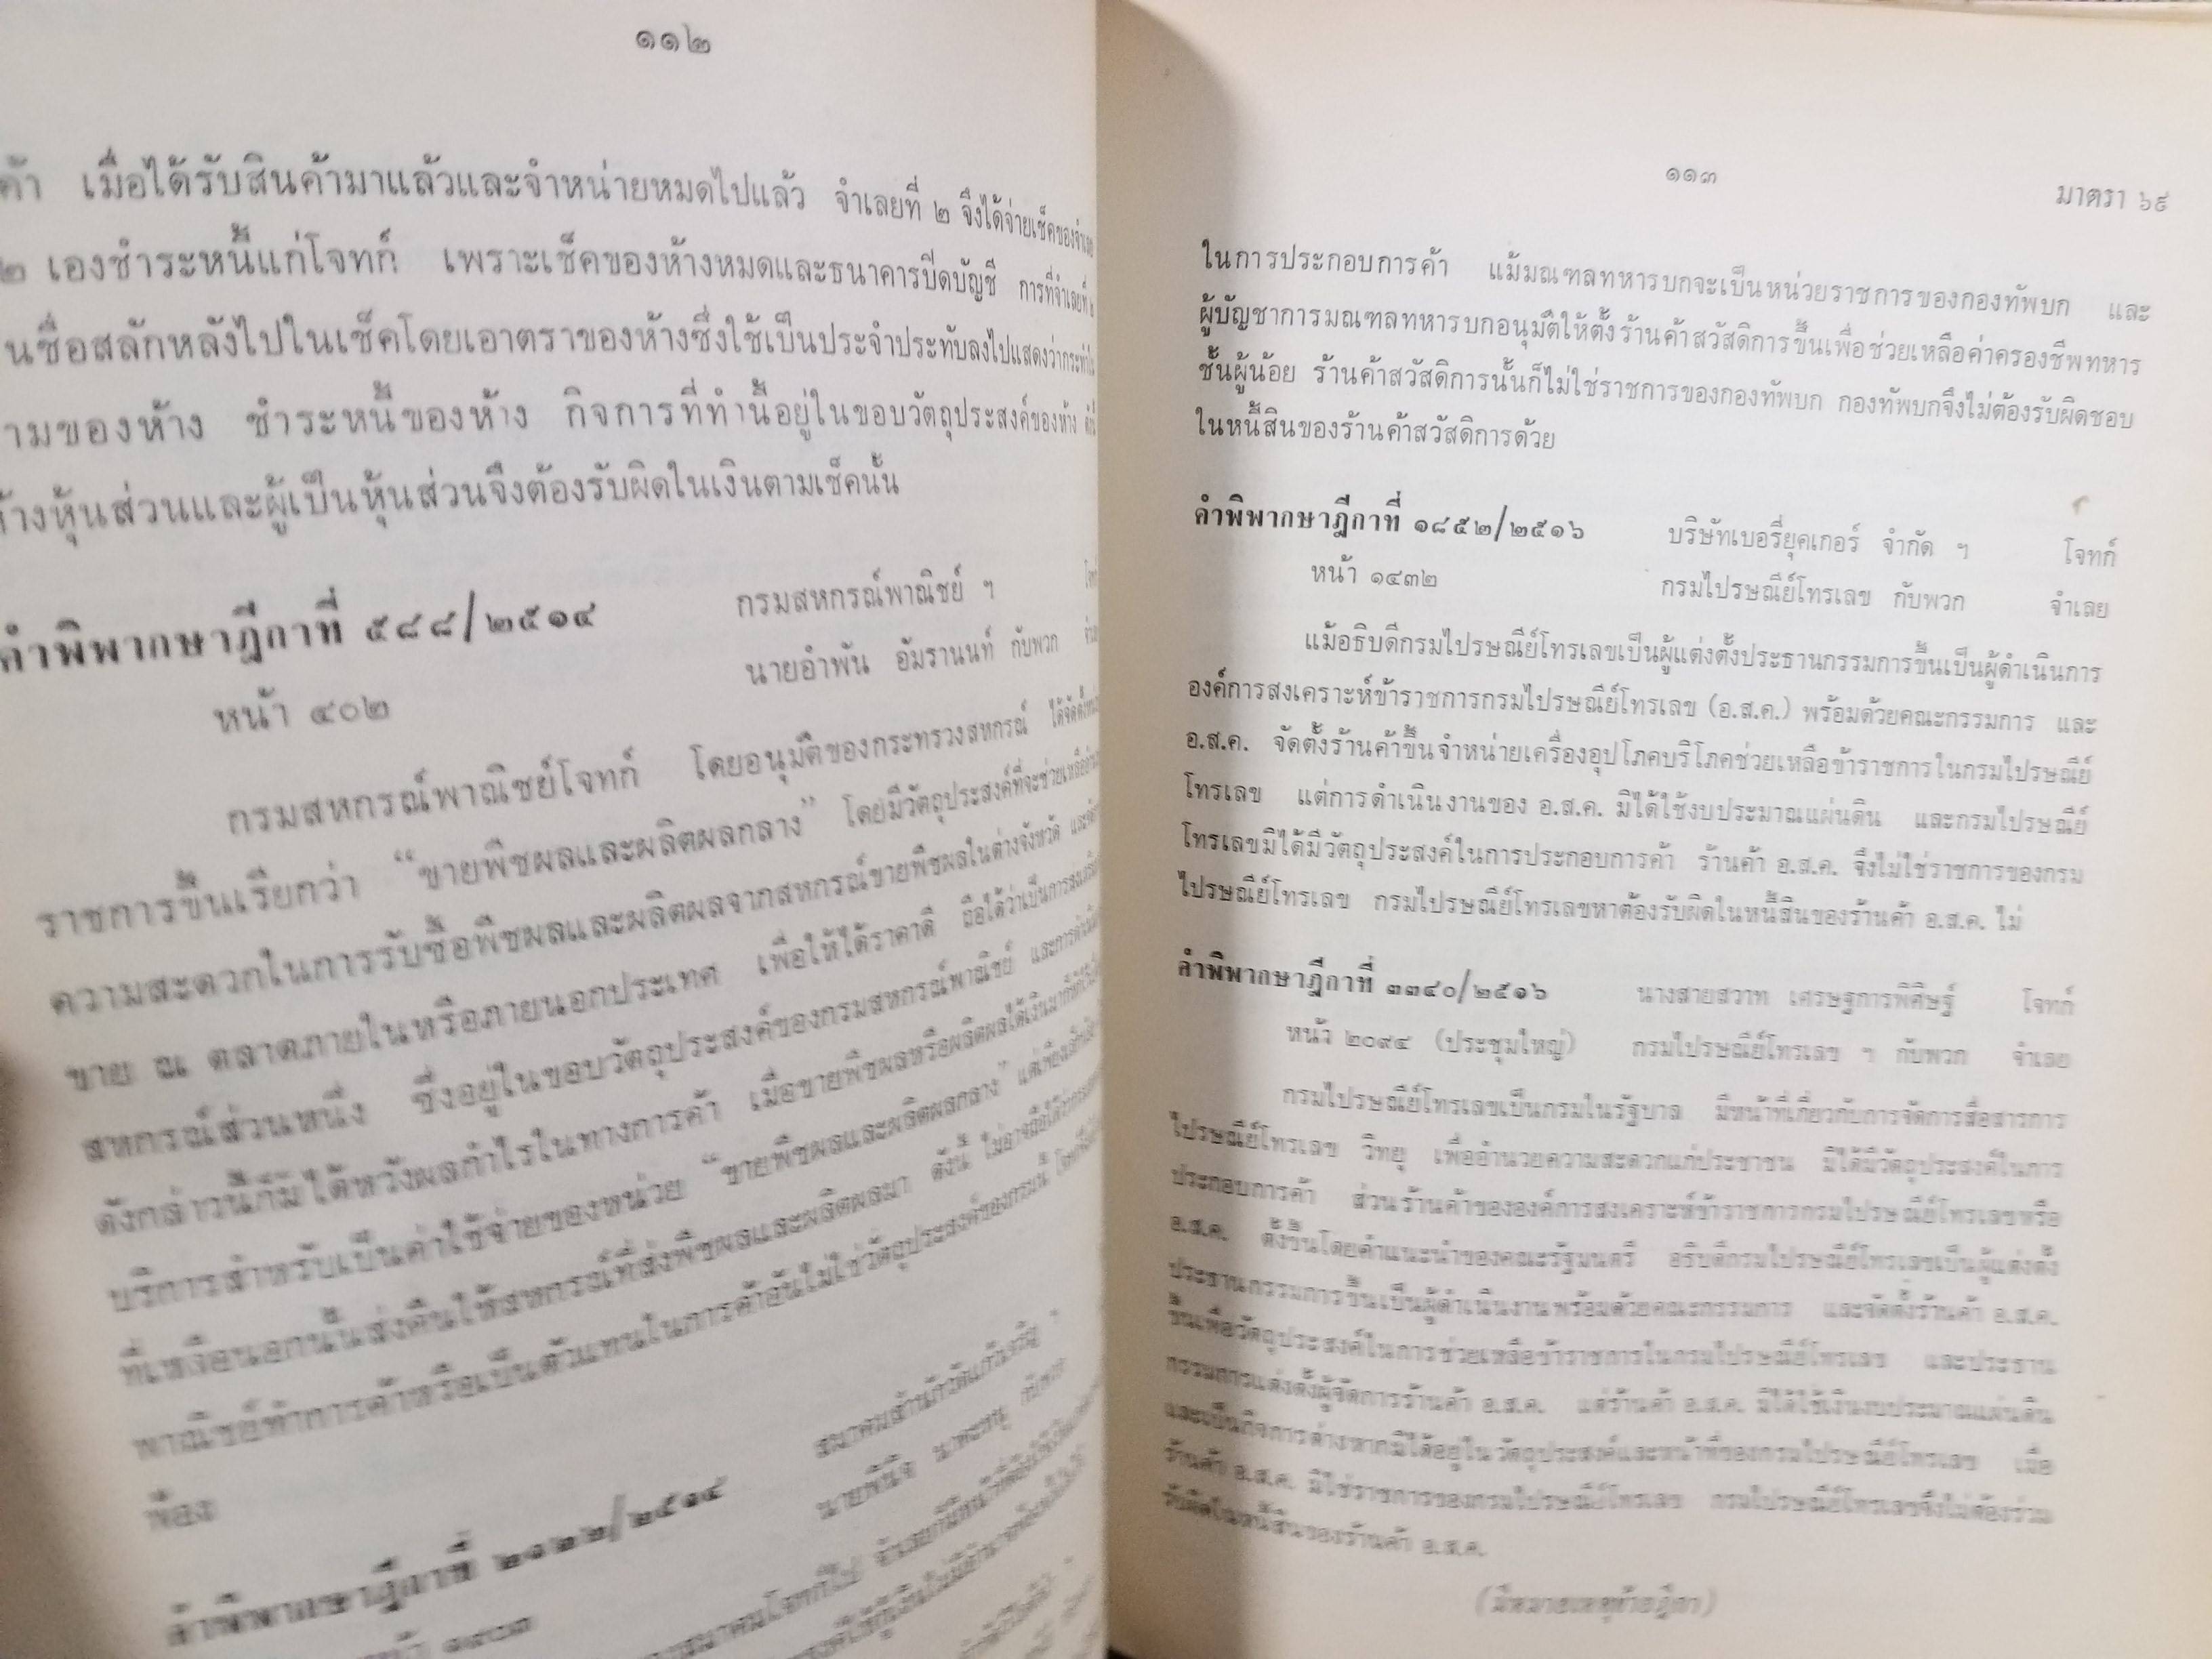 ๑๑๒
ค้า เมื่อได้รับสินค้ามาแล้วและจำหน่ายหมดไปแล้ว จำเลยที่ ๒ จึงได้จ่ายเช็คของ
๒ เองชำระหนี้แก่โจทก์ เพราะเช็คของห้างหมดและธนาคารปิดบัญชี การที่จำเลยที่
นชื่อสลักหลังไปในเช็คโดยเอาตราของห้างซึ่งใช้เป็นประจำประทับลงไปแสดงว่า
ามของห้าง ชำระหนี้ของห้าง กิจการที่ทำนี้อยู่ในขอบวัตถุประสงค์ของห้าง
ห้างหุ้นส่วนและผู้เป็นหุ้นส่วนจึงต้องรับผิดในเงินตามเช็คนั้น
คำพิพากษาฎีกาที่ ๕๘๘/๒๕๑๔ กรมสหกรณ์พาณิชย์ ฯ
หน้า ๔๐๒ นายอำพัน อัมรานนท์ กับพวก
กรมสหกรณ์พาณิชย์โจทก์ โดยอนุมัติของกระทรวงสหกรณ์
ราชการขึ้นเรียกว่า “ขายพืชผลและผลิตผลกลาง” โดยมีวัตถุประสงค์ที่จะช่วยเหลือ
ความสะดวกในการรับซื้อพืชผลและผลิตผลจากสหกรณ์ขายพืชผลในต่างจังหวัด
ขาย ณ ตลาดภายในหรือภายนอกประเทศ เพื่อให้ได้ราคาดี ถือได้ว่าเป็นการ
สหกรณ์ส่วนหนึ่ง ซึ่งอยู่ในขอบวัตถุประสงค์ของกรมสหกรณ์พาณิชย์ และการ
ดังกล่าวนี้ก็มิได้หวังผลกำไรในทางการค้า เมื่อขายพืชผลหรือผลิตผลได้เงินมา
บริการสำหรับเป็นค่าใช้จ่ายของหน่วย “ขายพืชผลและผลิตผลกลาง”
ที่เหลือนอกนั้นส่งคืนให้สหกรณ์ที่ส่งพืชผลและผลิตผลมา ดังนี้ ไม่อาจถือได้ว่า
พาณิชย์ทำการค้าหรือเป็นตัวแทนในการค้าอันไม่ใช่วัตถุประสงค์ของกรมนี้
ฟ้อง
คำพิพากษาฎีกาที่
๑๑๓
มาตรา ๖๙
ในการประกอบการค้า แม้มณฑลทหารบกจะเป็นหน่วยราชการของกองทัพบก และ
ผู้บัญชาการมณฑลทหารบกอนุมัติให้ตั้งร้านค้าสวัสดิการขึ้นเพื่อช่วยเหลือค่าครองชีพทหาร
ชั้นผู้น้อย ร้านค้าสวัสดิการนั้นก็ไม่ใช่ราชการของกองทัพบก กองทัพบกจึงไม่ต้องรับผิดชอบ
ในหนี้สินของร้านค้าสวัสดิการด้วย
คำพิพากษาฎีกาที่ ๑๘๕๒/๒๕๑๖ บริษัทเบอรี่ยุคเกอร์ จำกัด ฯ โจทก์
หน้า ๑๔๓๒ กรมไปรษณีย์โทรเลข กับพวก จำเลย
แม้อธิบดีกรมไปรษณีย์โทรเลขเป็นผู้แต่งตั้งประธานกรรมการขึ้นเป็นผู้ดำเนินการ
องค์การสงเคราะห์ข้าราชการกรมไปรษณีย์โทรเลข (อ.ส.ค.) พร้อมด้วยคณะกรรมการ และ
อ.ส.ค. จัดตั้งร้านค้าขึ้นจำหน่ายเครื่องอุปโภคบริโภคช่วยเหลือข้าราชการในกรมไปรษณีย์
โทรเลข แต่การดำเนินงานของ อ.ส.ค. มิได้ใช้งบประมาณแผ่นดิน และกรมไปรษณีย์
โทรเลขมิได้มีวัตถุประสงค์ในการประกอบการค้า ร้านค้า อ.ส.ค. จึงไม่ใช่ราชการของกรม
ไปรษณีย์โทรเลข กรมไปรษณีย์โทรเลขหาต้องรับผิดในหนี้สินของร้านค้า อ.ส.ค. ไม่
คำพิพากษาฎีกาที่ ๓๓๔๐/๒๕๑๖ นางสายสวาท เศรษฐการพิศิษฐ์ โจทก์
หน้า ๒๐๙๔ (ประชุมใหญ่) กรมไปรษณีย์โทรเลข ฯ กับพวก จำเลย
กรมไปรษณีย์โทรเลขเป็นกรมในรัฐบาล มีหน้าที่เกี่ยวกับการจัดการสื่อสารการ
ไปรษณีย์โทรเลข วิทยุ เพื่ออำนวยความสะดวกแก่ประชาชน มิได้มีวัตถุประสงค์ในการ
ประกอบการค้า ส่วนร้านค้าขององค์การสงเคราะห์ข้าราชการกรมไปรษณีย์โทรเลขหรือ
อ.ส.ค. ตั้งขึ้นโดยคำแนะนำของคณะรัฐมนตรี อธิบดีกรมไปรษณีย์โทรเลขเป็นผู้แต่งตั้ง
ประธานกรรมการขึ้นเป็นผู้ดำเนินงานพร้อมด้วยคณะกรรมการ และจัดตั้งร้านค้า อ.ส.ค.
ขึ้นเพื่อวัตถุประสงค์ในการช่วยเหลือข้าราชการในกรมไปรษณีย์โทรเลข และประธาน
กรรมการแต่งตั้งผู้จัดการร้านค้า อ.ส.ค. แต่ร้านค้า อ.ส.ค. มิได้ใช้เงินงบประมาณแผ่นดิน
และเป็นกิจการต่างหากมิได้อยู่ในวัตถุประสงค์และหน้าที่ของกรมไปรษณีย์โทรเลข เมื่อ
ร้านค้า อ.ส.ค. มิใช่ราชการของกรมไปรษณีย์โทรเลข กรมไปรษณีย์โทรเลขจึงไม่ต้องร่วม
รับผิดในหนี้สินของร้านค้า อ.ส.ค.
(มีหมายเหตุท้ายฎีกา)